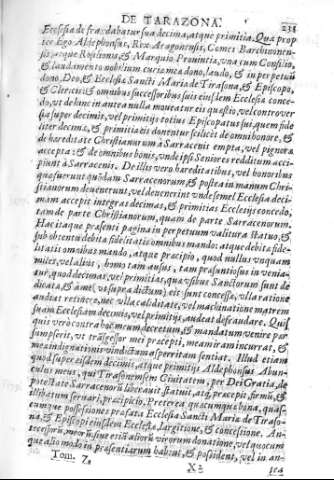 DE TARAZONA. 238
Ecclesiæ de fra: dabatur sua decima, atque primitia. Qua prop
ter Ego Aldephonsus, Rex Aragonensis, Comes Barchinonen-
sis, atque Rosilionis, & Marquio Prouintiæ, vna cum Consilio,
& laudamento nobilium curiæ meæ dono, laudo, & in perpetuū
dono, Deo, & Ecclesiæ Sanctæ Mariæ de Tirasona, & Episcopo,
& Clericis: & omnibus successoribus suis eiusdem Ecclesiæ conce-
do, vt de hinc in antea nulla moueatur eis quæstio, vel controuer
sia super decimis, vel primitijs totius Episcopatus sui, quem fide
liter decima, & primitia eis donentur scilicet de omni honore, &
de hæreditate Christianorum à Sarracenis empta, vel pignora
accepta: & de omnibus bonis, vnde ipsi Seniores redditum acci-
piunt à Sarracenis. De illis vero hæreditatibus, vel honoribus
quæ fuerunt quōdam Sarracenorum, & postea in manum Chri-
stianorum deuenerunt, vel deuenerint vnde semel Ecclesia deci-
mam accepit integras decimas, & primitias Ecclesijs concedo,
tam de parte Christianorum, quam de parte Sarracenorum.
Hac itaque præsenti pagina in perpetuum valitura statuo, &
sub obtentu debitæ fidelitatis omnibus mando: atque debita fide-
litatis omnibus mando, atque præcipio, quod nullus vnquam
miles, vel alius, homo tam ausus, tam præsuntiosus inuenia-
tur, quod decimas, vel primitias, quæ vsibus Sanctorum sunt de
dicatæ, & à me (vt supra dictum) eis sunt concessæ, vlla ratione
audeat retinere, nec vlla caliditate, vel machinatione matrem
suam Ecclesiam decimis, vel primitijs, audeat defraudare. Quisquis
qui verò contra hoc meum decretum, & mandatum venire præ
sumpserit, vt trāsgressor mei præcepti, meam iram incurrat, &
meæ indignationis vindictam asperitam sentiat. Illud etiam
quod super eisdem decimis, atque primitijs Aldephonsus Abun
culus meus, qui Tirasonensem Ciuitatem, per Dei Gratia, de
potestate Sarracenorū liberauit statuit, atq; præcepit, firmū, &
illibatum seruari, præcipio. Præterea quacumque bona, quas-
cumque possesiones præfata Ecclesia Sanctæ Mariæ de Tiraso-
na, & Episcopi eiusdem Ecclesiæ, largitione, & concesione. An-
tecessorū, meorū, siue etiā aliorū virorum donatione, vel quocum
que alio modo in præsentiarum habeat, & possident, vel in an-
Tom. 7. X 2 tea